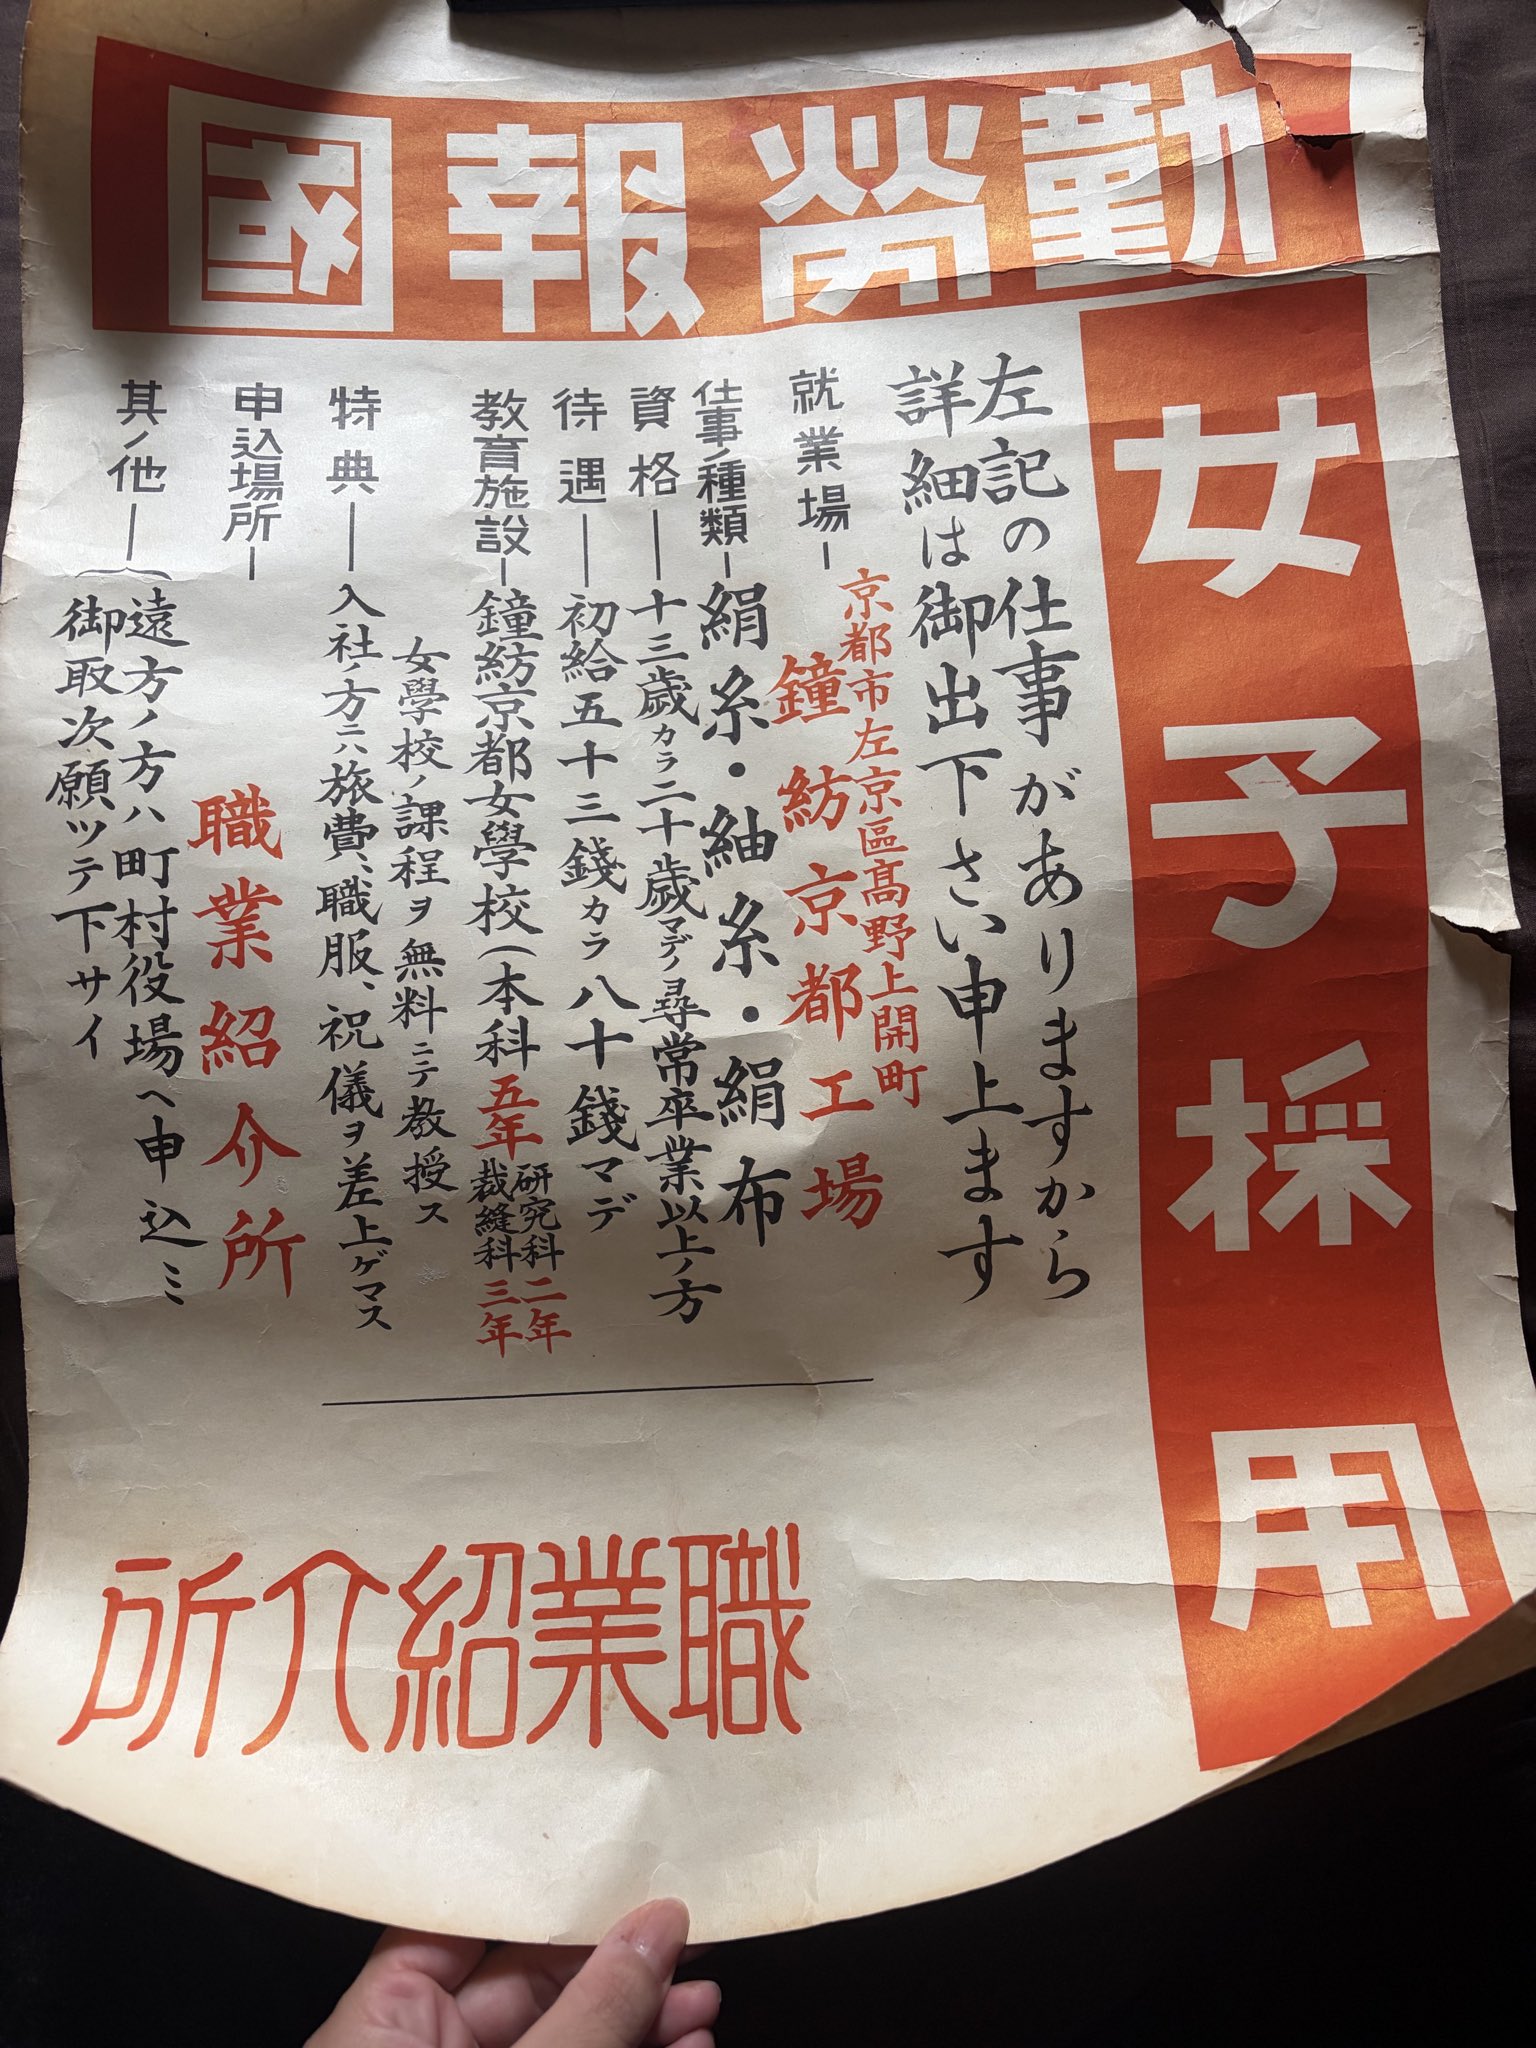 勤勞報國
女子採用
左記の仕事がありますから
詳細は御出下さい申上ます
就業場―
京都市左京區高野上開町
鐘紡京都工場
仕事ノ種類―絹糸・紬糸・絹布
資格―十三歲カラ二十歲マデノ尋常卒業以上ノ方
待遇―初給五十三錢カラ八十錢マデ
教育施設―鐘紡京都女學校(本科五年
研究科二年
裁縫科三年
女學校ノ課程ヲ無料ニテ教授ス
特典―入社ノ方ニハ旅費、職服、祝儀ヲ差上ゲマス
申込場所―職業紹介所
其ノ他―
遠方ノ方ハ町村役場へ申込ミ
御取次願ツテ下サイ
職業紹介所